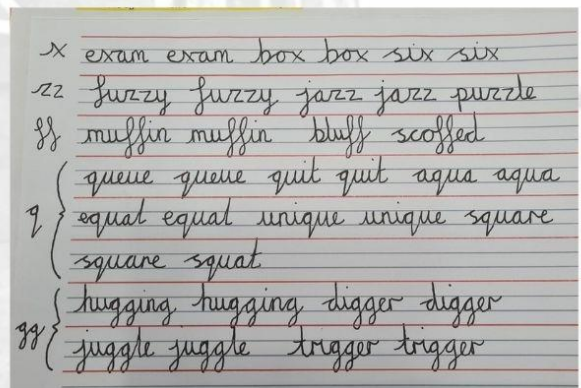 x exam exam box box six six
zz fuzzy fuzzy jazz jazz puzzle
ff muffin muffin bluff scoffed
queue queue quit quit aqua aqua
q equal equal unique unique square
square squat
hugging hugging digger digger
gg juggle juggle trigger trigger